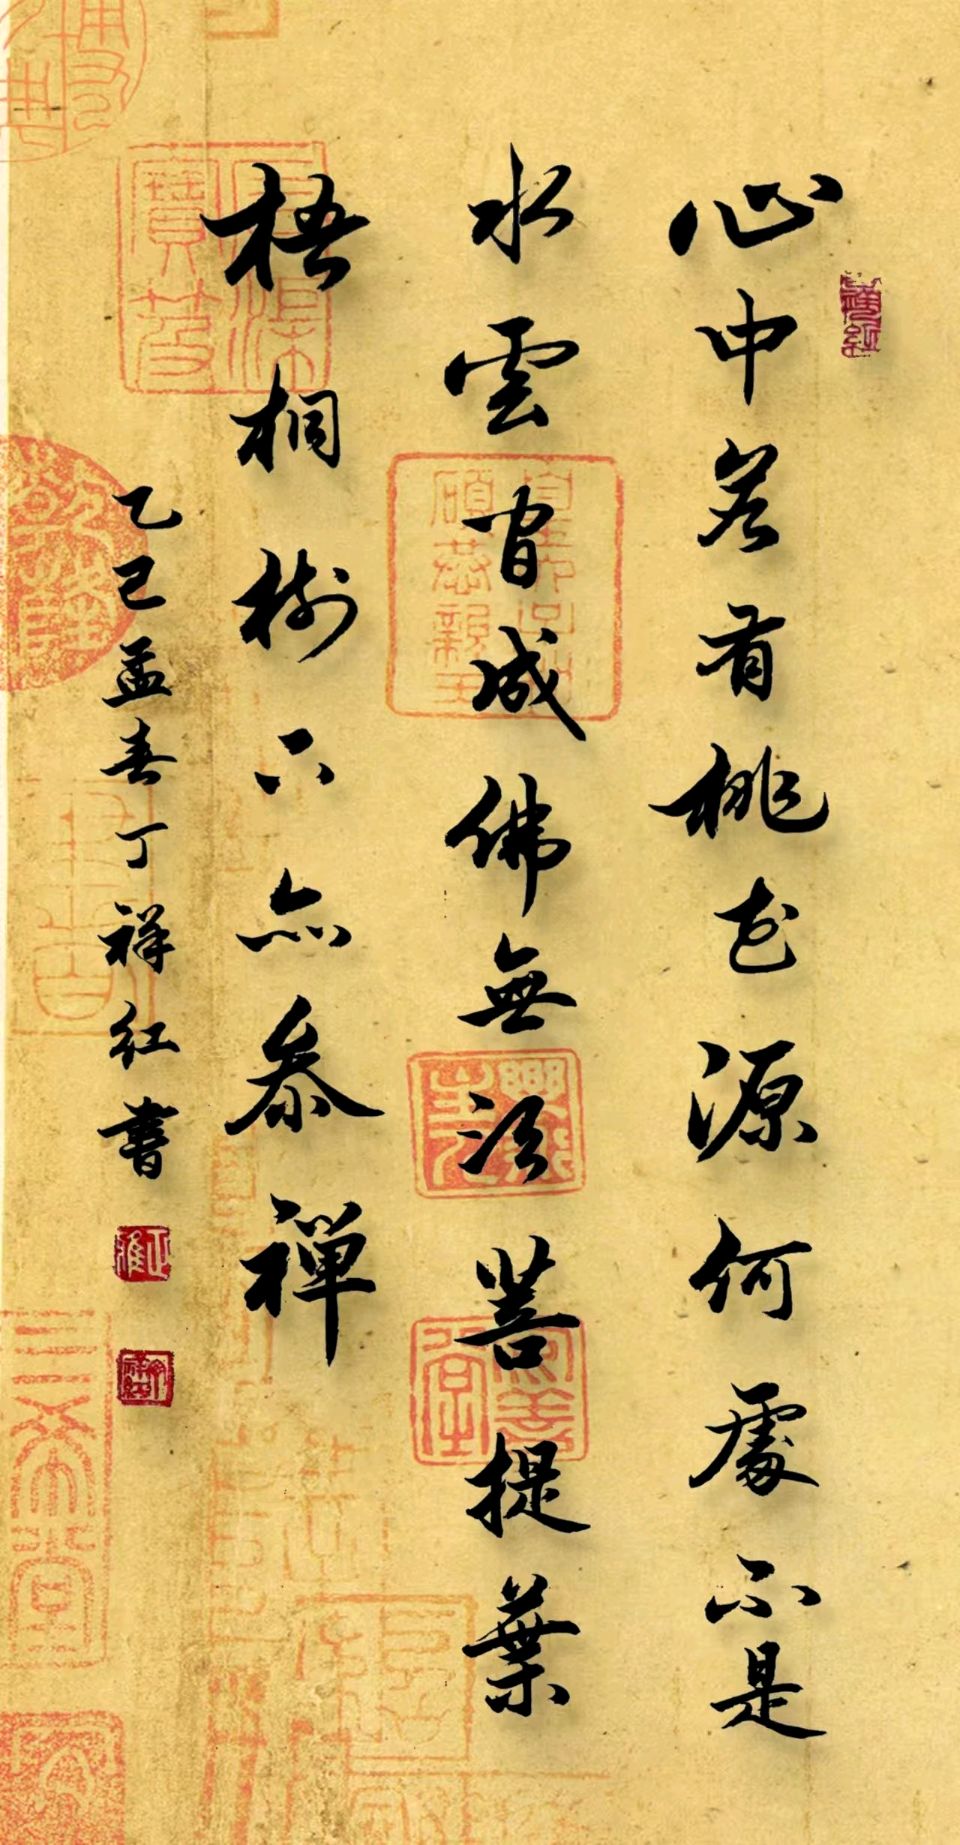 心中若有桃花源何處不是
水雲間成佛無須菩提葉
梧桐樹下亦參禪
乙巳孟春丁祥紅書
石渠寶笈
三希堂